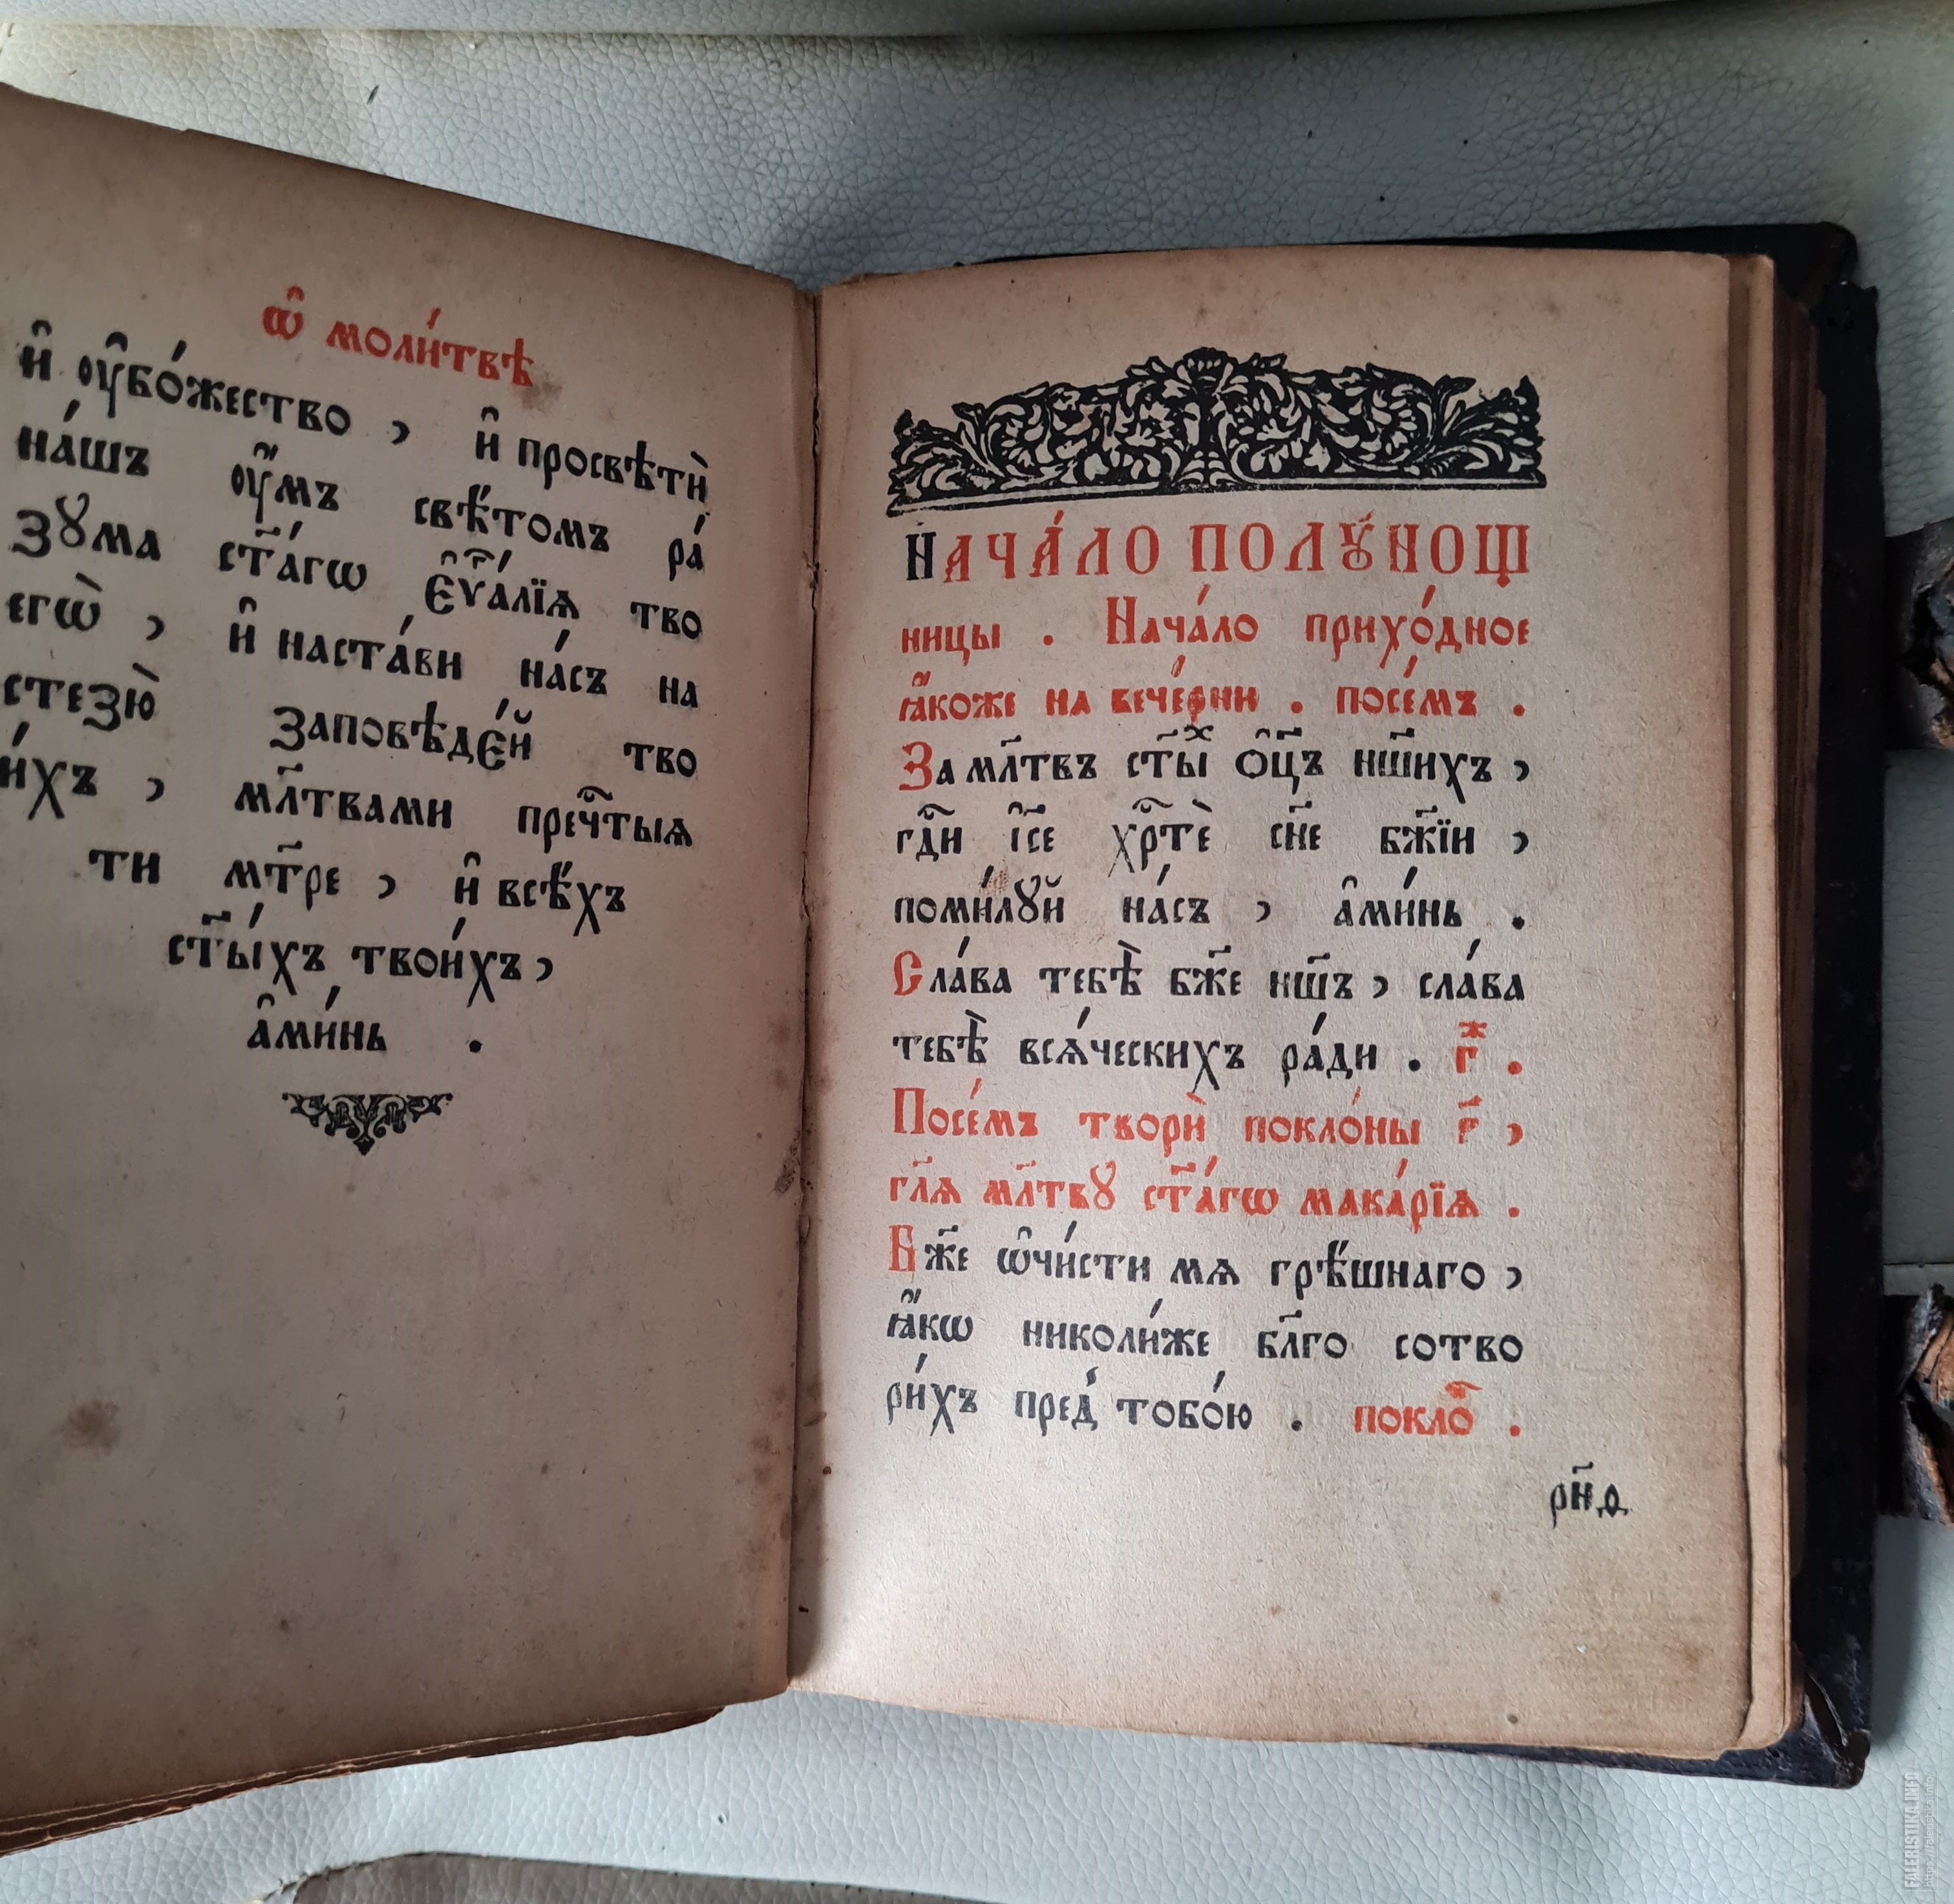 ѡ҆ моли́твѣ
и҆ ᲂу҆бо́жество , и҆ просвѣтѝ
на́шъ ᲂу҆́мъ свѣ́томъ ра́
зꙋма ст҃а́гѡ є҆ѵⷢ҇а́лїѧ тво
егѡ̀ , и҆ наста́ви на́съ на
стезю̀ заповѣде́й тво
и́хъ , мл҃твами преч҇тыѧ
ти мт҃ре , и҆ всѣ́хъ
ст҃ы́хъ твои́хъ ,
а҆ми́нь .
Нача́ло полꙋ́нощ
ницы . Нача́ло прихо́дное
ꙗ҆́коже на вече́рни . посе́мъ .
За мл҃твъ ст҃ы́ⷯ ѻ҆ц҃ъ нш҃ихъ ,
гдⷭ҇и і҆с҃е хрⷭ҇тѐ сн҃е бж҃їи ,
поми́лꙋй на́съ , а҆ми́нь .
Сла́ва тебѣ̀ бж҃е нш҃ъ , сла́ва
тебѣ̀ всѧ́ческихъ ра́ди . гⷤ .
Посе́мъ творѝ покло́ны г҃ ,
гл҃ѧ мл҃твꙋ ст҃а́гѡ мака́рїѧ .
Бж҃е ѡ҆чи́сти мѧ грѣ́шнаго ,
ꙗ҆́кѡ николи́же бл҃го сотво
ри́хъ пред̾ тобо́ю . покло́ⷩ .
рн҃д
FALERISTIKA.INFO
https://faleristika.info